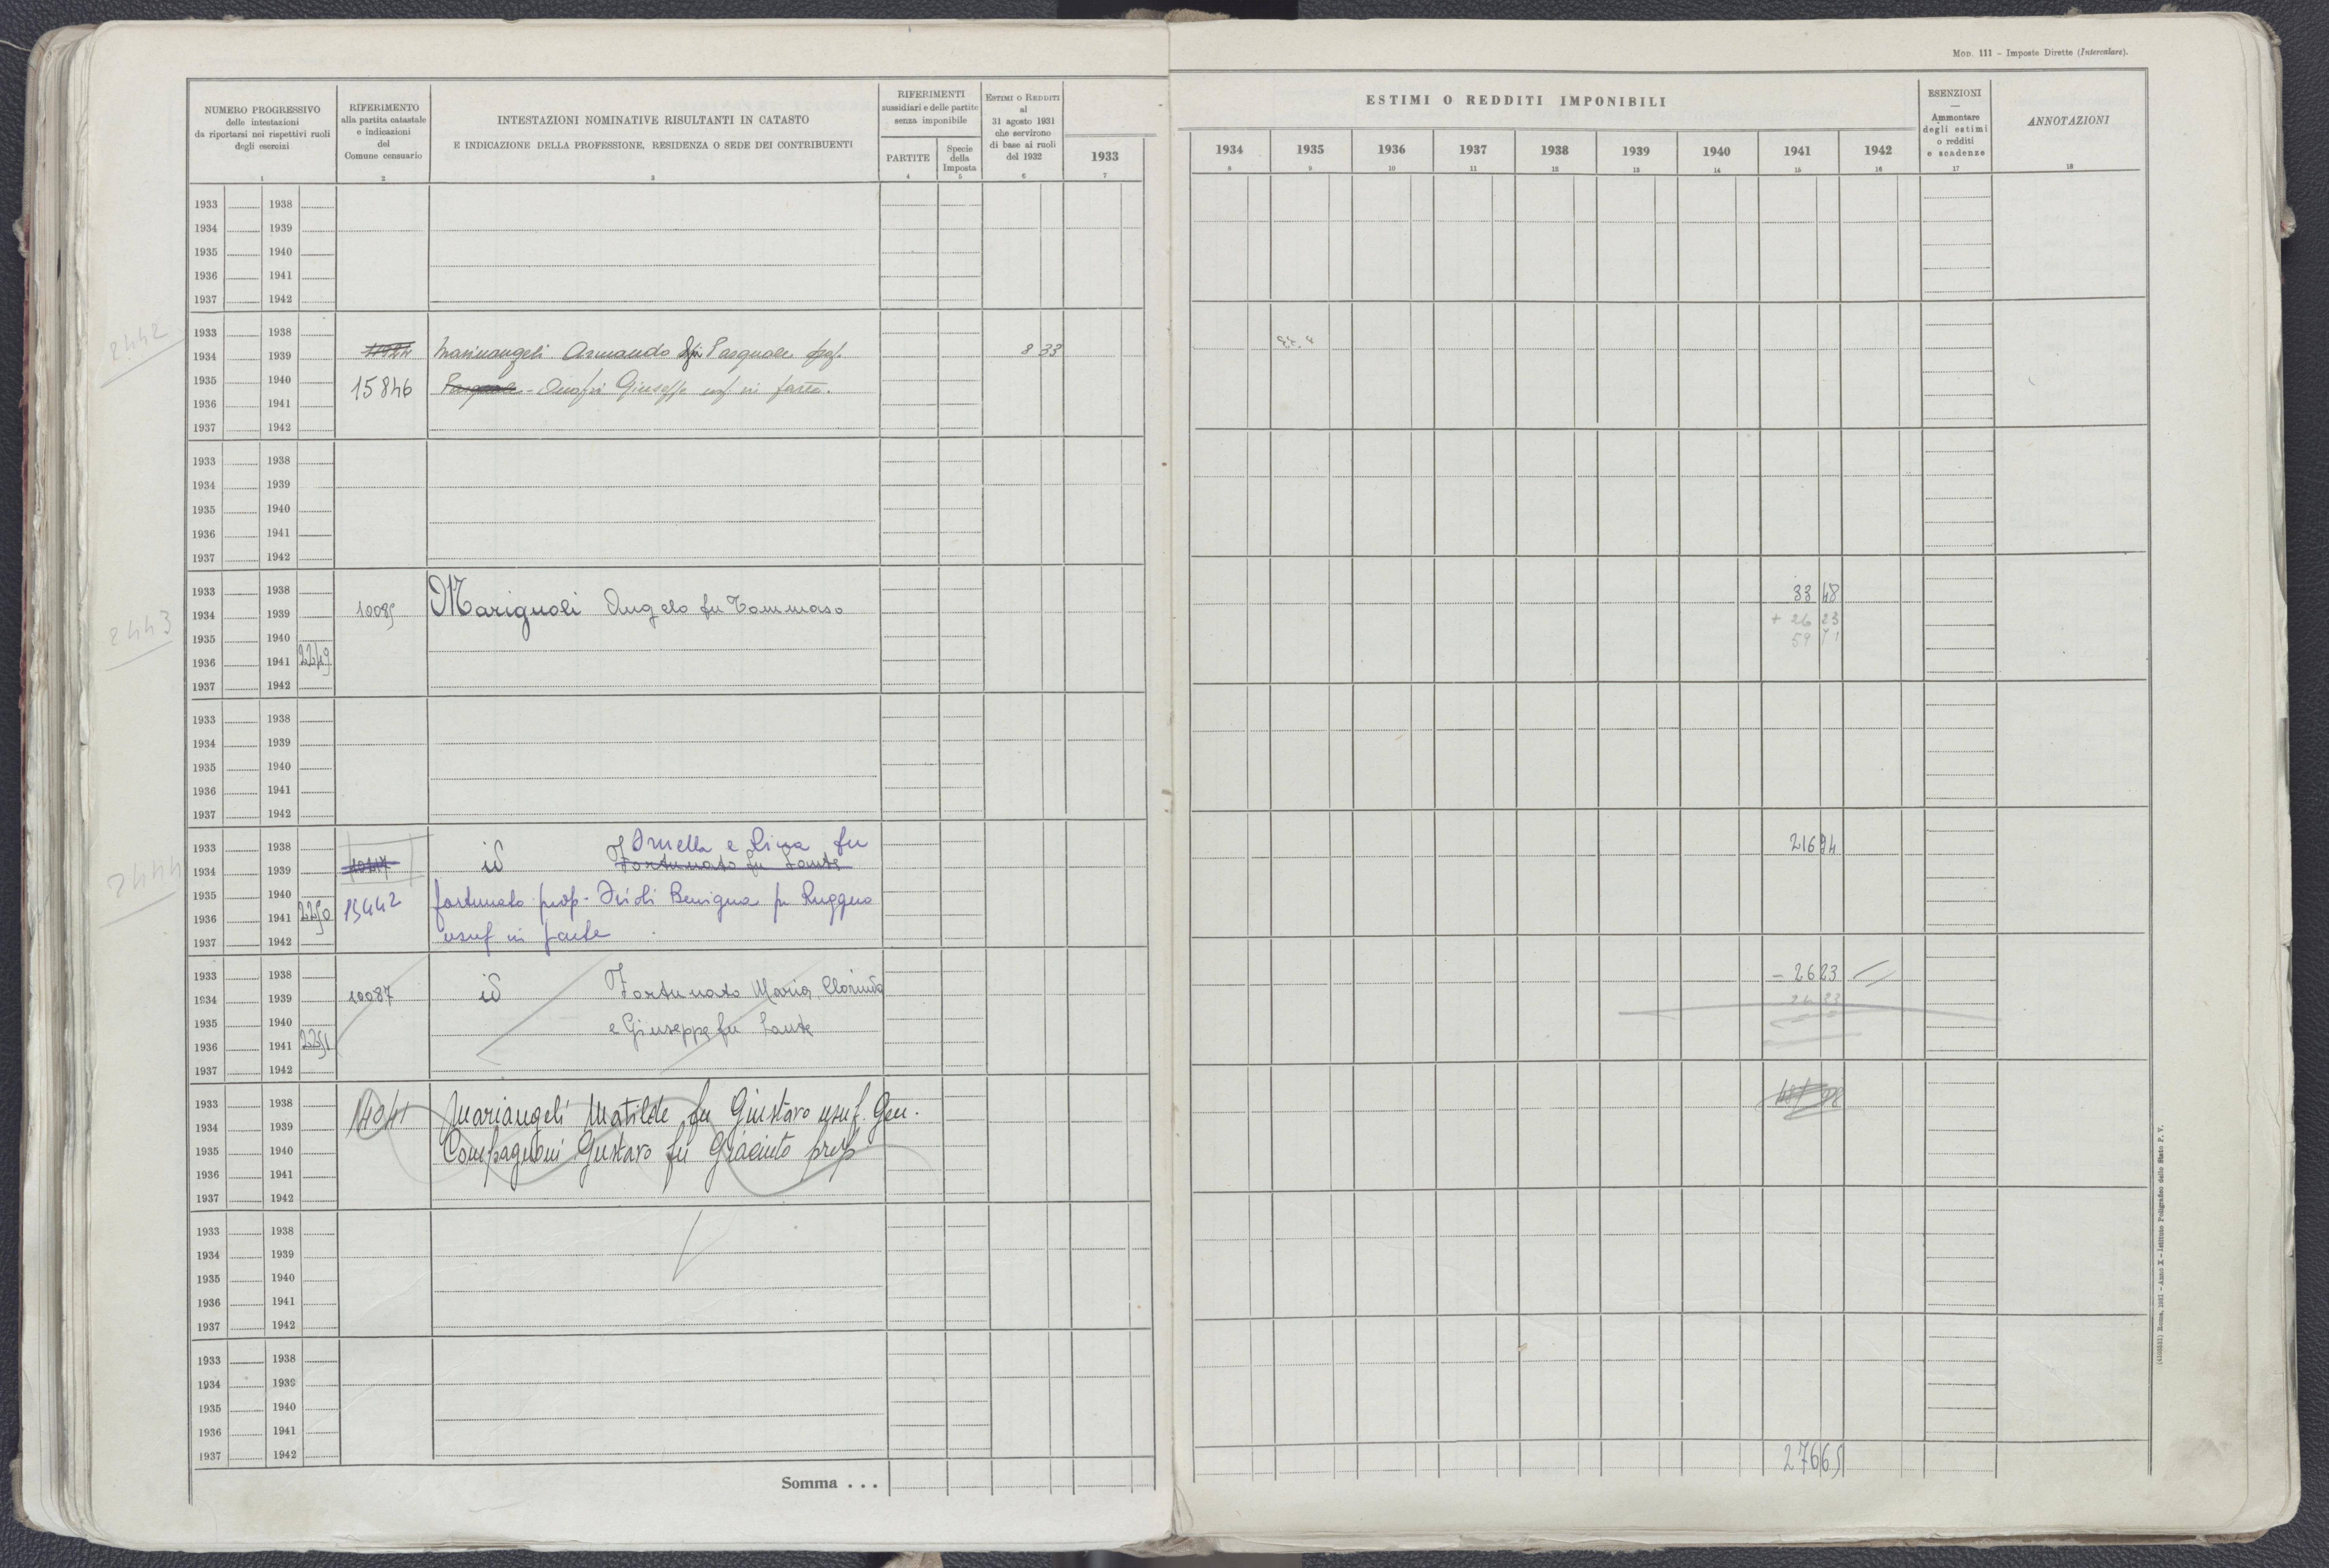 Mod. 111 – Imposte Dirette (Intercalare).
NUMERO PROGRESSIVO
delle intestazioni
da riportarsi nei rispettivi ruoli
degli esercizi
1
RIFERIMENTO
alla partita catastale
e indicazioni
del
Comune censuario
2
INTESTAZIONI NOMINATIVE RISULTANTI IN CATASTO
E INDICAZIONE DELLA PROFESSIONE, RESIDENZA O SEDE DEI CONTRIBUENTI
3
RIFERIMENTI
sussidiari e delle partite
senza imponibile
PARTITE
4
Specie
della
Imposta
5
Estimi o Redditi
al
31 agosto 1931
che servirono
di base ai ruoli
del 1932
6
1933
7
ESTIMI O REDDITI IMPONIBILI
1934 1935 1936 1937 1938 1939 1940 1941 1942
8 9 10 11 12 13 14 15 16
ESENZIONI
—
Ammontare
degli estimi
o redditi
e scadenze
17
ANNOTAZIONI
18
1933 1938
1934 1939
1935 1940
1936 1941
1937 1942
2442
1933 1938
1934 1939 Marinangeli Armando di Pasquale prop. 8 33
1935 1940 15846 Pasquale - Onofri Giuseppe usf. in parte.
1936 1941
1937 1942
1933 1938
1934 1939
1935 1940
1936 1941
1937 1942
2443
1933 1938 33 48
1934 1939 10085 Marignoli Angelo fu Tommaso + 26 23
1935 1940 59 71
1936 1941 2249
1937 1942
1933 1938
1934 1939
1935 1940
1936 1941
1937 1942
2444
1933 1938 Ornella e Lina fu 216 94
1934 1939 id Fortunato fu Sante
1935 1940 fortunato prop.
1936 1941 2250 15442 Benigna fu Ruggero
1937 1942 usuf in parte
1933 1938 id Fortunato Maria, Clorinda – 26 23
1934 1939 10087 26 23
1935 1940 e Giuseppe fu Sante
1936 1941 2251
1937 1942
1933 1938 Mariangeli Matilde fu Giustavo usuf. Gen.
1934 1939 14041
1935 1940 Compagnoni Gustavo fu Giacinto prop
1936 1941
1937 1942
1933 1938
1934 1939
1935 1940
1936 1941
1937 1942
1933 1938
1934 1939
1935 1940
1936 1941
1937 1942
Somma . . . 276 65
(4103251) Roma, 1931 – Anno X – Istituto Poligrafico dello Stato P. V.